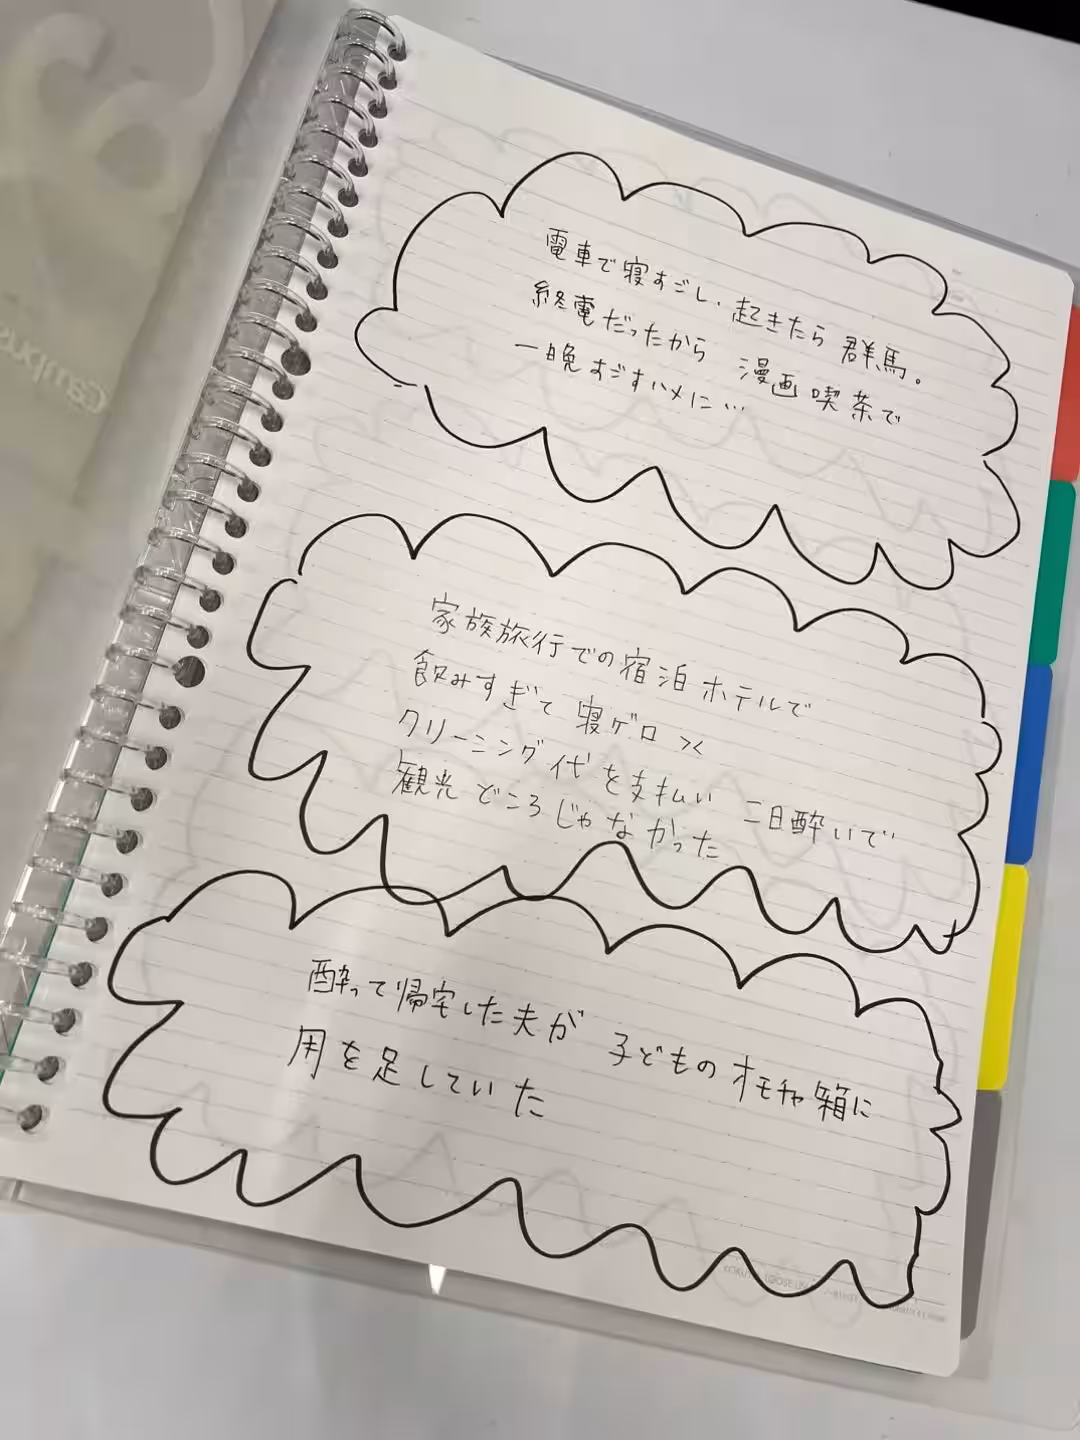 電車で寝すごし、起きたら群馬。
終電だったから 漫画喫茶で
一晩すごすハメに…
家族旅行での宿泊ホテルで
飲みすぎて寝ゲロ><
クリーニング代を支払い 二日酔いで
観光どころじゃなかった
酔って帰宅した夫が 子どものオモチャ箱に
用を足していた
Campus